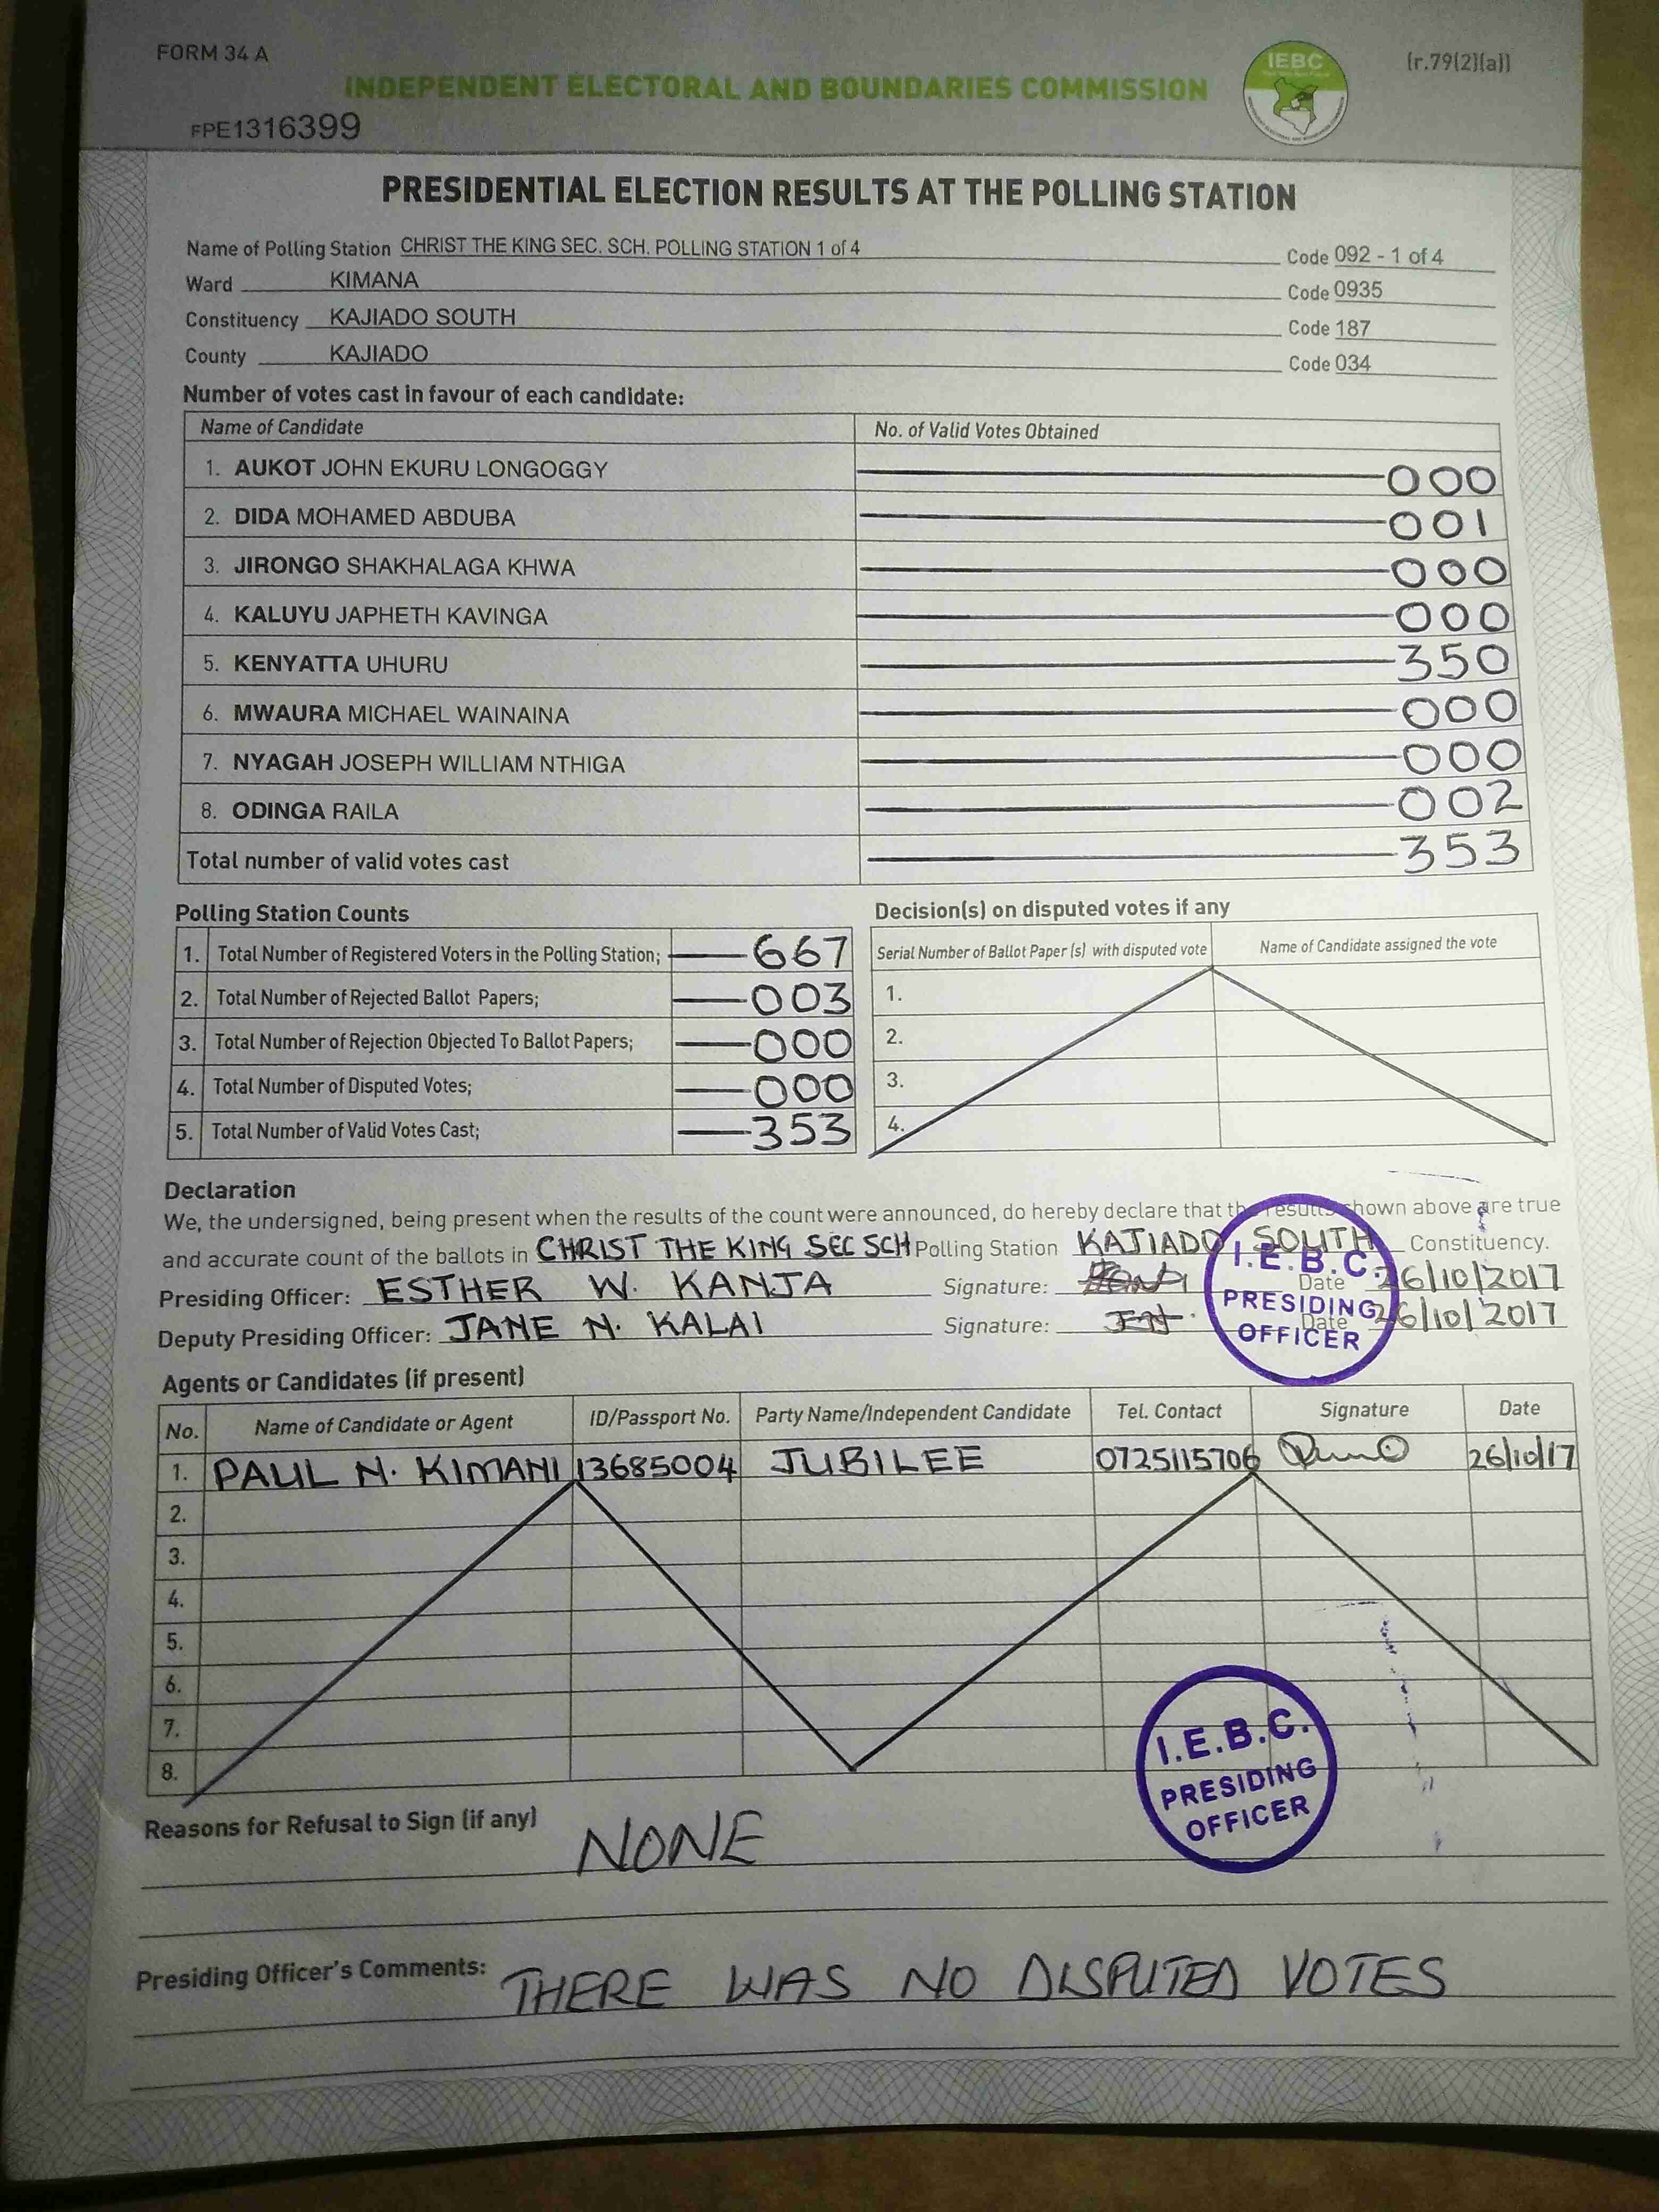 FORM 34 A
INDEPENDENT ELECTORAL AND BOUNDARIES COMMISSION
IEBC
(r.79(2)(a))
FPE1316399
PRESIDENTIAL ELECTION RESULTS AT THE POLLING STATION
Name of Polling Station CHRIST THE KING SEC. SCH. POLLING STATION 1 of 4 Code 092 - 1 of 4
Ward KIMANA Code 0935
Constituency KAJIADO SOUTH Code 187
County KAJIADO Code 034
Number of votes cast in favour of each candidate:
Name of Candidate No. of Valid Votes Obtained
1. AUKOT JOHN EKURU LONGOGGY 000
2. DIDA MOHAMED ABDUBA 001
3. JIRONGO SHAKHALAGA KHWA 000
4. KALUYU JAPHETH KAVINGA 000
5. KENYATTA UHURU 350
6. MWAURA MICHAEL WAINAINA 000
7. NYAGAH JOSEPH WILLIAM NTHIGA 000
8. ODINGA RAILA 002
Total number of valid votes cast 353
Polling Station Counts
1. Total Number of Registered Voters in the Polling Station; 667
2. Total Number of Rejected Ballot Papers; 003
3. Total Number of Rejection Objected To Ballot Papers; 000
4. Total Number of Disputed Votes; 000
5. Total Number of Valid Votes Cast; 353
Decision(s) on disputed votes if any
Serial Number of Ballot Paper (s) with disputed vote Name of Candidate assigned the vote
1.
2.
3.
4.
Declaration
We, the undersigned, being present when the results of the count were announced, do hereby declare that the results shown above are true
and accurate count of the ballots in CHRIST THE KING SEC SCH Polling Station KAJIADO SOUTH Constituency.
Presiding Officer: ESTHER W. KANJA Signature: Date 26/10/2017
Deputy Presiding Officer: JANE N. KALAI Signature: Date 26/10/2017
I.E.B.C.
PRESIDING
OFFICER
Agents or Candidates (if present)
No. Name of Candidate or Agent ID/Passport No. Party Name/Independent Candidate Tel. Contact Signature Date
1. PAUL N. KIMANI 13685004 JUBILEE 0725115706 26/10/17
2.
3.
4.
5.
6.
7.
8.
I.E.B.C.
PRESIDING
OFFICER
Reasons for Refusal to Sign (if any) NONE
Presiding Officer's Comments: THERE WAS NO DISPUTED VOTES